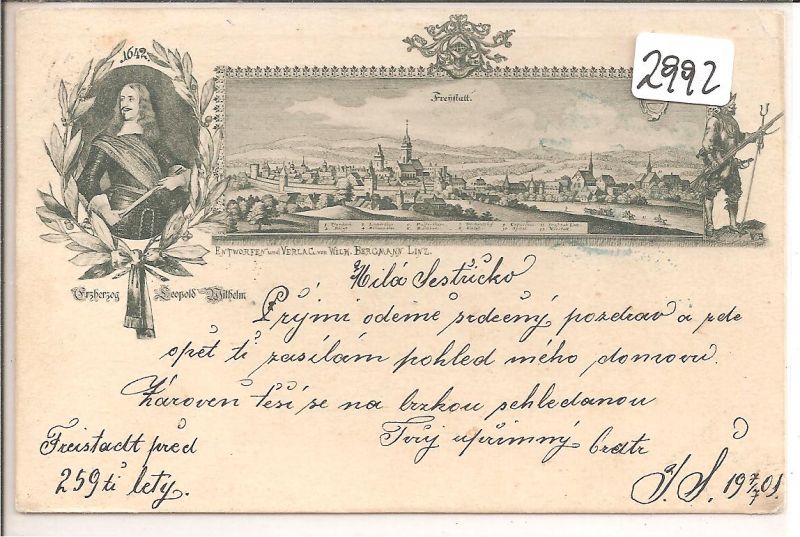 1642.
Freÿstatt.
2992
ENTWORFEN und VERLAG von WILH. BERGMANN LINZ.
Erzherzog Leopold Wilhelm
Milá Sestřičko
Přijmi odemě srdečný pozdrav a zde
opět ti zasílám pohled mého domovu.
Zároveň těší se na brzkou schledanou
Tvůj upřimný bratr
Freistadt před
259ti lety.
J. S. 19 7/7 01.